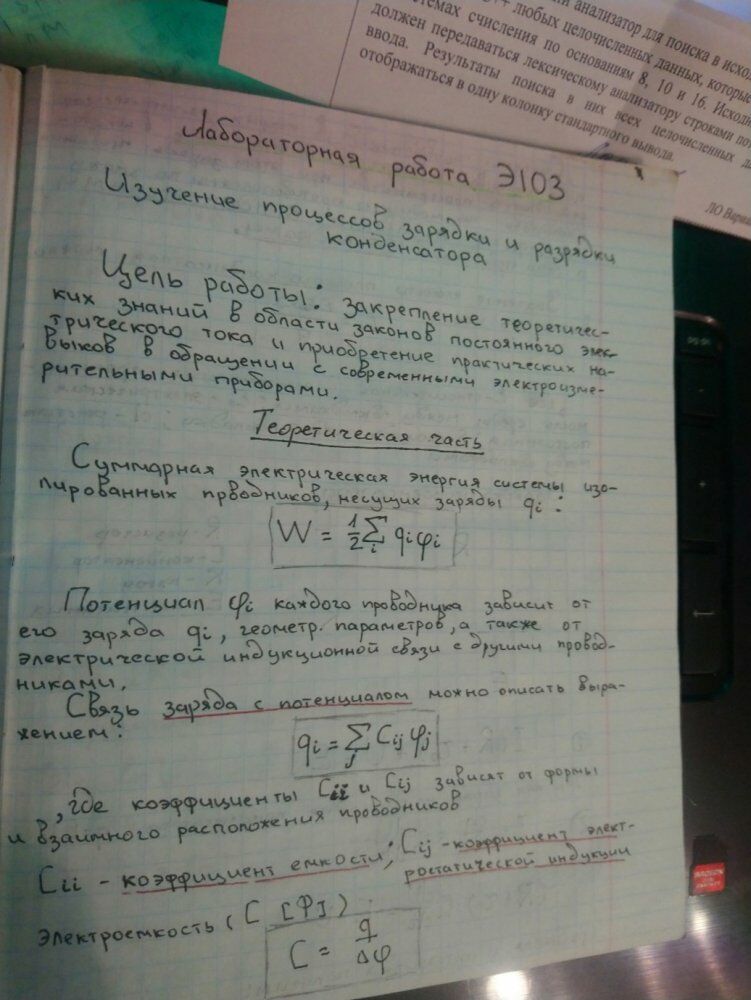 анализатор для поиска в
любых целочисленных данных, которые
системах счисления по основаниям 8, 10 и 16.
должен передаваться лексическому анализатору строками
ввода. Результаты поиска в них всех целочисленных
отображаться в одну колонку стандартного вывода.
ЛО
Лабораторная работа Э103
Изучение процессов зарядки и разрядки
конденсатора
Цель работы: закрепление теоретичес-
ких знаний в области законов постоянного элек-
трического тока и приобретение практических на-
выков в обращении с современными электроизме-
рительными приборами.
Теоретическая часть
Суммарная электрическая энергия системы изо-
лированных прводников, несущих заряды qi:
W = 1/2 Σi qiφi
Потенциал φi каждого проводника зависит от
его заряда qi, геометр. параметров, а также от
электрической индукционной связи с другими провод-
никами.
Связь заряда с потенциалом можно описать выра-
жением:
qi = Σj Cij φj
, где коэффициенты Cii и Cij зависят от формы
и взаимного расположения проводников
Cii - коэффициент емкости; Cij - коэффициент элект-
ростатической индукции
Электроемкость (C [Ф])
C = q/Δφ